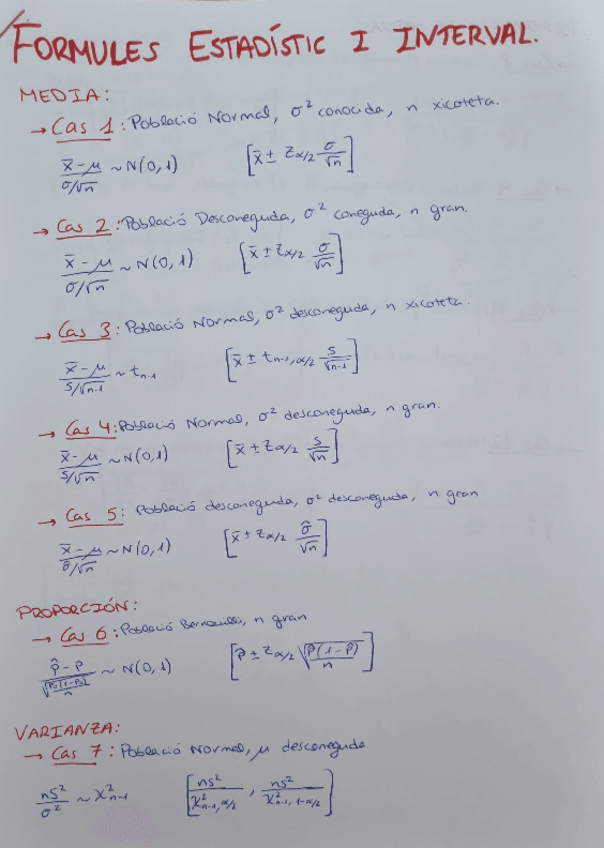 FORMULES ESTADÍSTIC I INTERVAL.
MEDIA:
→ Cas 1: Població Normal, σ² conocida, n xicoteta.
(x̄ - μ)/(σ/√n) ~ N(0,1) [x̄ ± Zα/2 σ/√n]
→ Cas 2: Població Desconeguda, σ² coneguda, n gran.
(x̄ - μ)/(σ/√n) ~ N(0,1) [x̄ ± Zα/2 σ/√n]
→ Cas 3: Població Normal, σ² desconeguda, n xicoteta.
(x̄ - μ)/(S/√n-1) ~ tn-1 [x̄ ± tn-1,α/2 S/√n-1]
→ Cas 4: Població Normal, σ² desconeguda, n gran.
(x̄ - μ)/(S/√n) ~ N(0,1) [x̄ ± Zα/2 S/√n]
→ Cas 5: Població desconeguda, σ² desconeguda, n gran
(x̄ - μ)/(σ̂/√n) ~ N(0,1) [x̄ ± Zα/2 σ̂/√n]
PROPORCIÓN:
→ Cas 6: Població Bernouilli, n gran
(p̂ - p)/√(p₀(1-p₀)/n) ~ N(0,1) [p̂ ± Zα/2 √(p̂(1-p̂)/n)]
VARIANZA:
→ Cas 7: Població Normal, μ desconeguda.
nS²/σ² ~ χ²n-1 [nS²/χ²n-1,α/2 , nS²/χ²n-1,1-α/2]